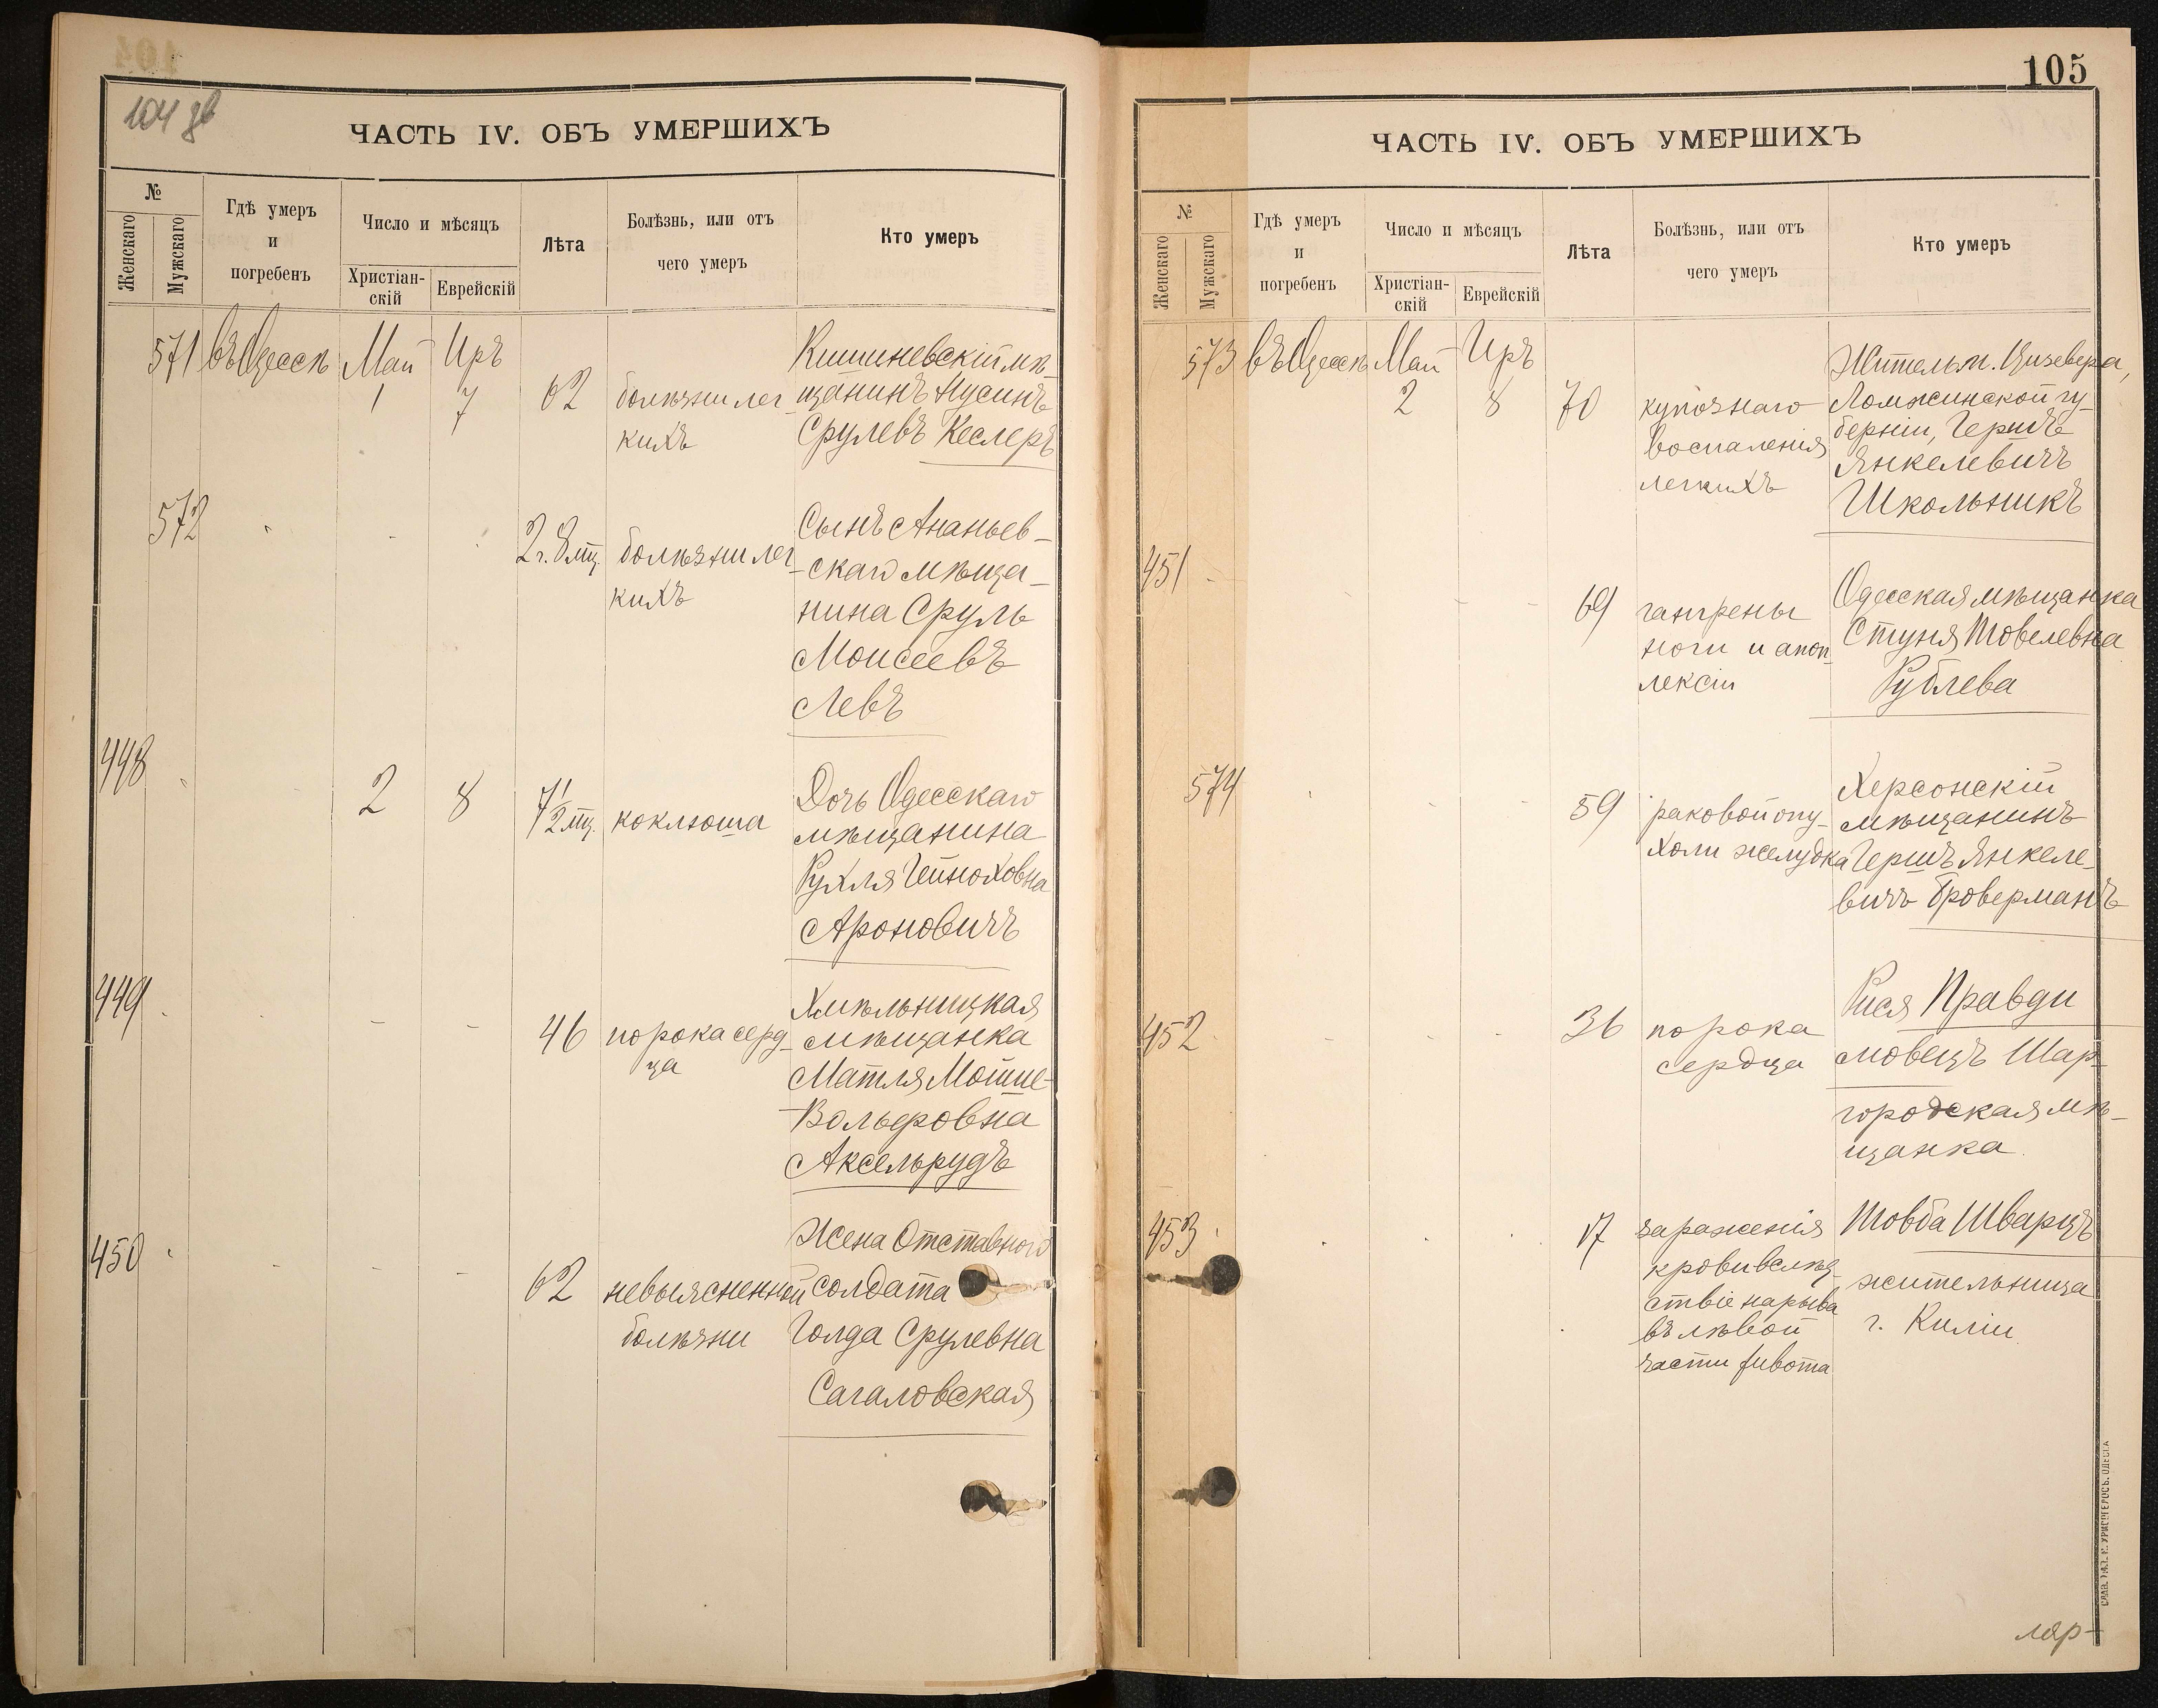 104 зв
ЧАСТЬ IV. ОБЪ УМЕРШИХЪ
№
Женскаго
Мужскаго
Гдѣ умеръ
и
погребенъ
Число и мѣсяцъ
Христіан-
скій
Еврейскій
Лѣта
Болѣзнь, или отъ
чего умеръ
Кто умеръ
571 въ Одессѣ Май Иръ
1 7 62
болѣзни лег
кихъ
Кишиневскій мѣ-
щанинъ Нусинъ
Срулевъ Кеслеръ
572
2 г. 8 мц.
болѣзни лег
кихъ
Сынъ Ананьев-
скаго мѣща-
нина Сруль
Моисеевъ
Левъ
448
2 8 7 1/2 мц. коклюша
Дочь Одесскаго
мѣщанина
Рухля Гейноховна
Ароновичъ
449 - - 46
порока серд-
ца
Хмѣльницкая
мѣщанка
Матля Мошке-
Вольфовна
Аксельрудъ
450 - - - 62
невыясненной
болѣзни
Жена Отставного
солдата
Голда Срулевна
Сагаловская
105
ЧАСТЬ IV. ОБЪ УМЕРШИХЪ
№
Женскаго
Мужскаго
Гдѣ умеръ
и
погребенъ
Число и мѣсяцъ
Христіан-
скій
Еврейскій
Лѣта
Болѣзнь, или отъ
чего умеръ
Кто умеръ
573 въ Одессѣ Май Иръ
2 8 70
воспаленія
легкихъ
Житель м.
Ломжинской гу-
берніи, Гершъ
Янкелевичъ
Школьникъ
451 - - - 69
гангрены
ноги и апоп-
лексіи
Одесская мѣщанка
Стуня Товелевна
Рублева
574 - - 59
раковой опу-
холи желудка
Херсонскій
мѣщанинъ
Гершъ Янкеле-
вичъ Броверманъ
452 - - - 36
порока
сердца
Рися Правди
мовецъ Шар-
городская мѣ-
щанка
453 17
зараженія
крови вслѣд-
ствіе нарыва
въ лѣвой
части живота
Товба Шварцъ
жительница
г. Киліи